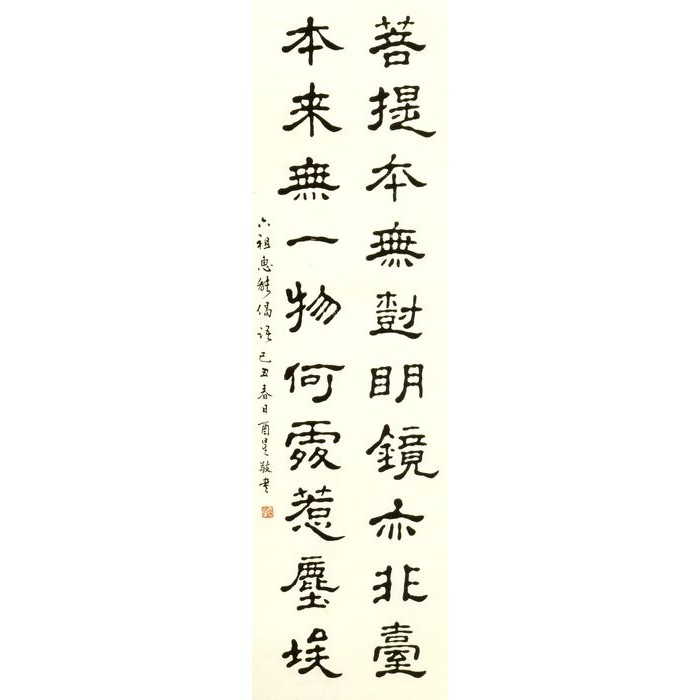 菩提本無樹明鏡亦非臺
本来無一物何處惹塵埃
六祖惠能偈語己丑春日酉星敬書